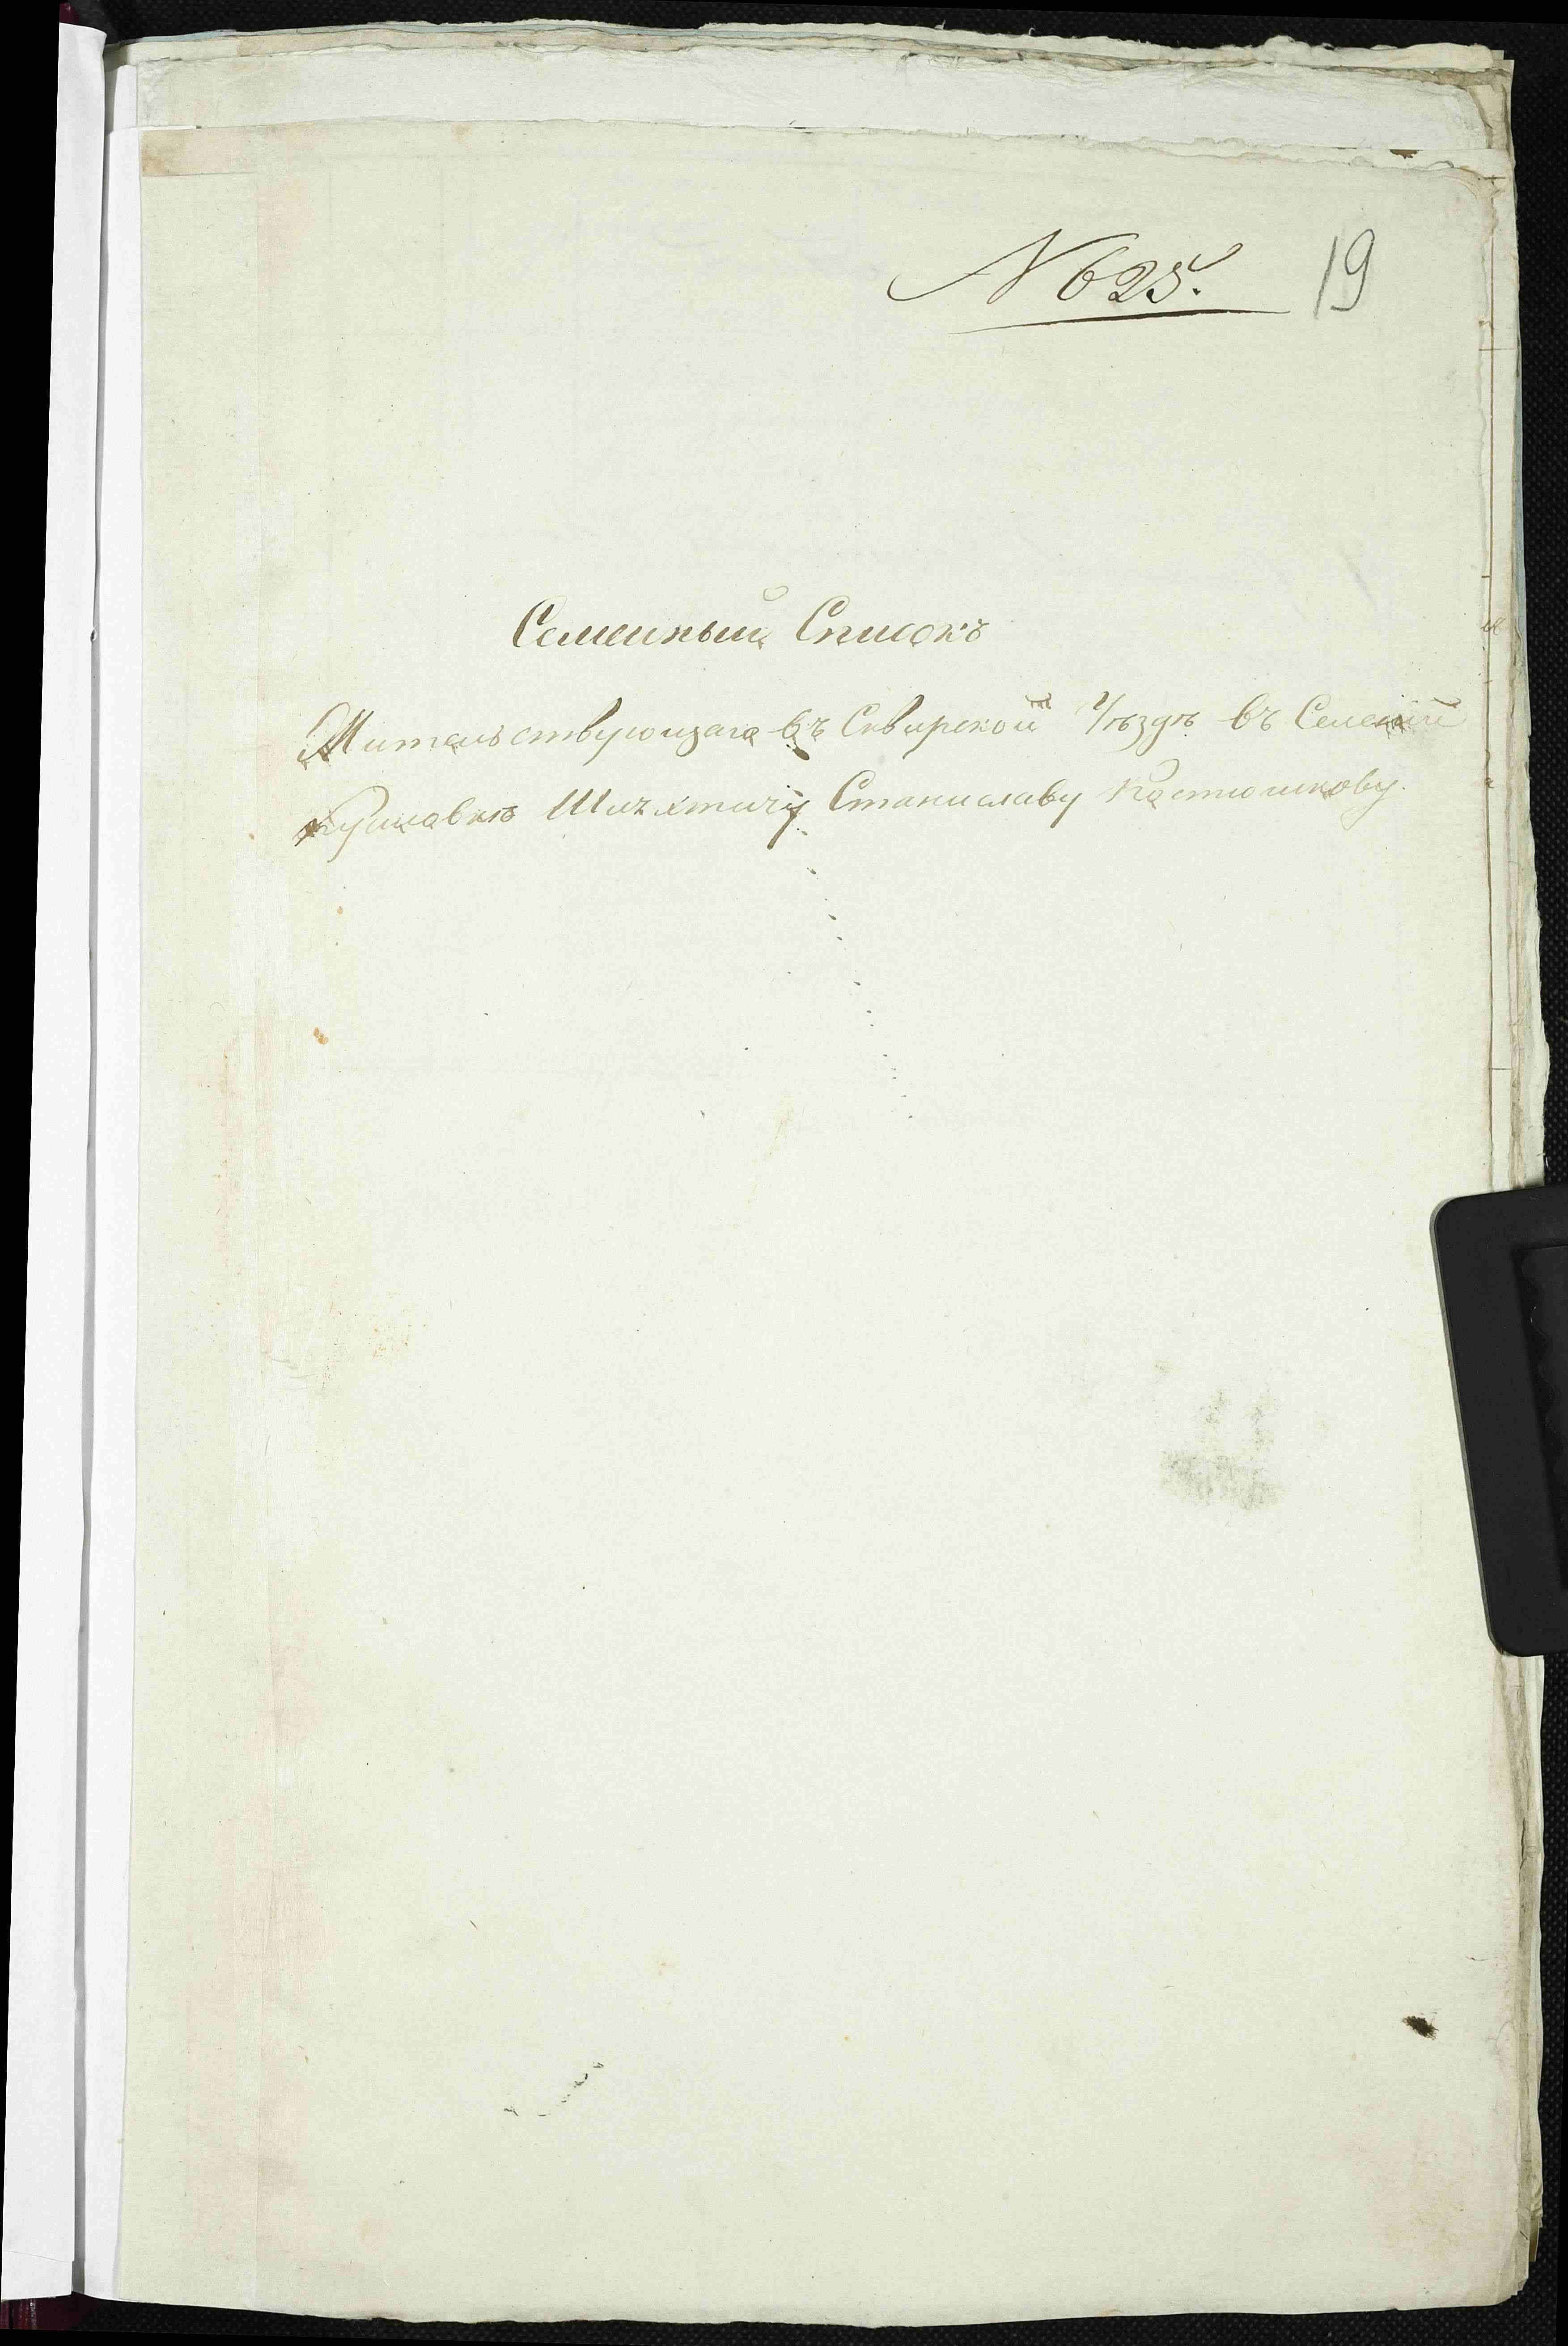 N 625. 19
Семейный Списокъ
Жительствующаго въ Сквирской Уѣздѣ въ Селеній
Шляхтичу Станиславу Костюшкову.